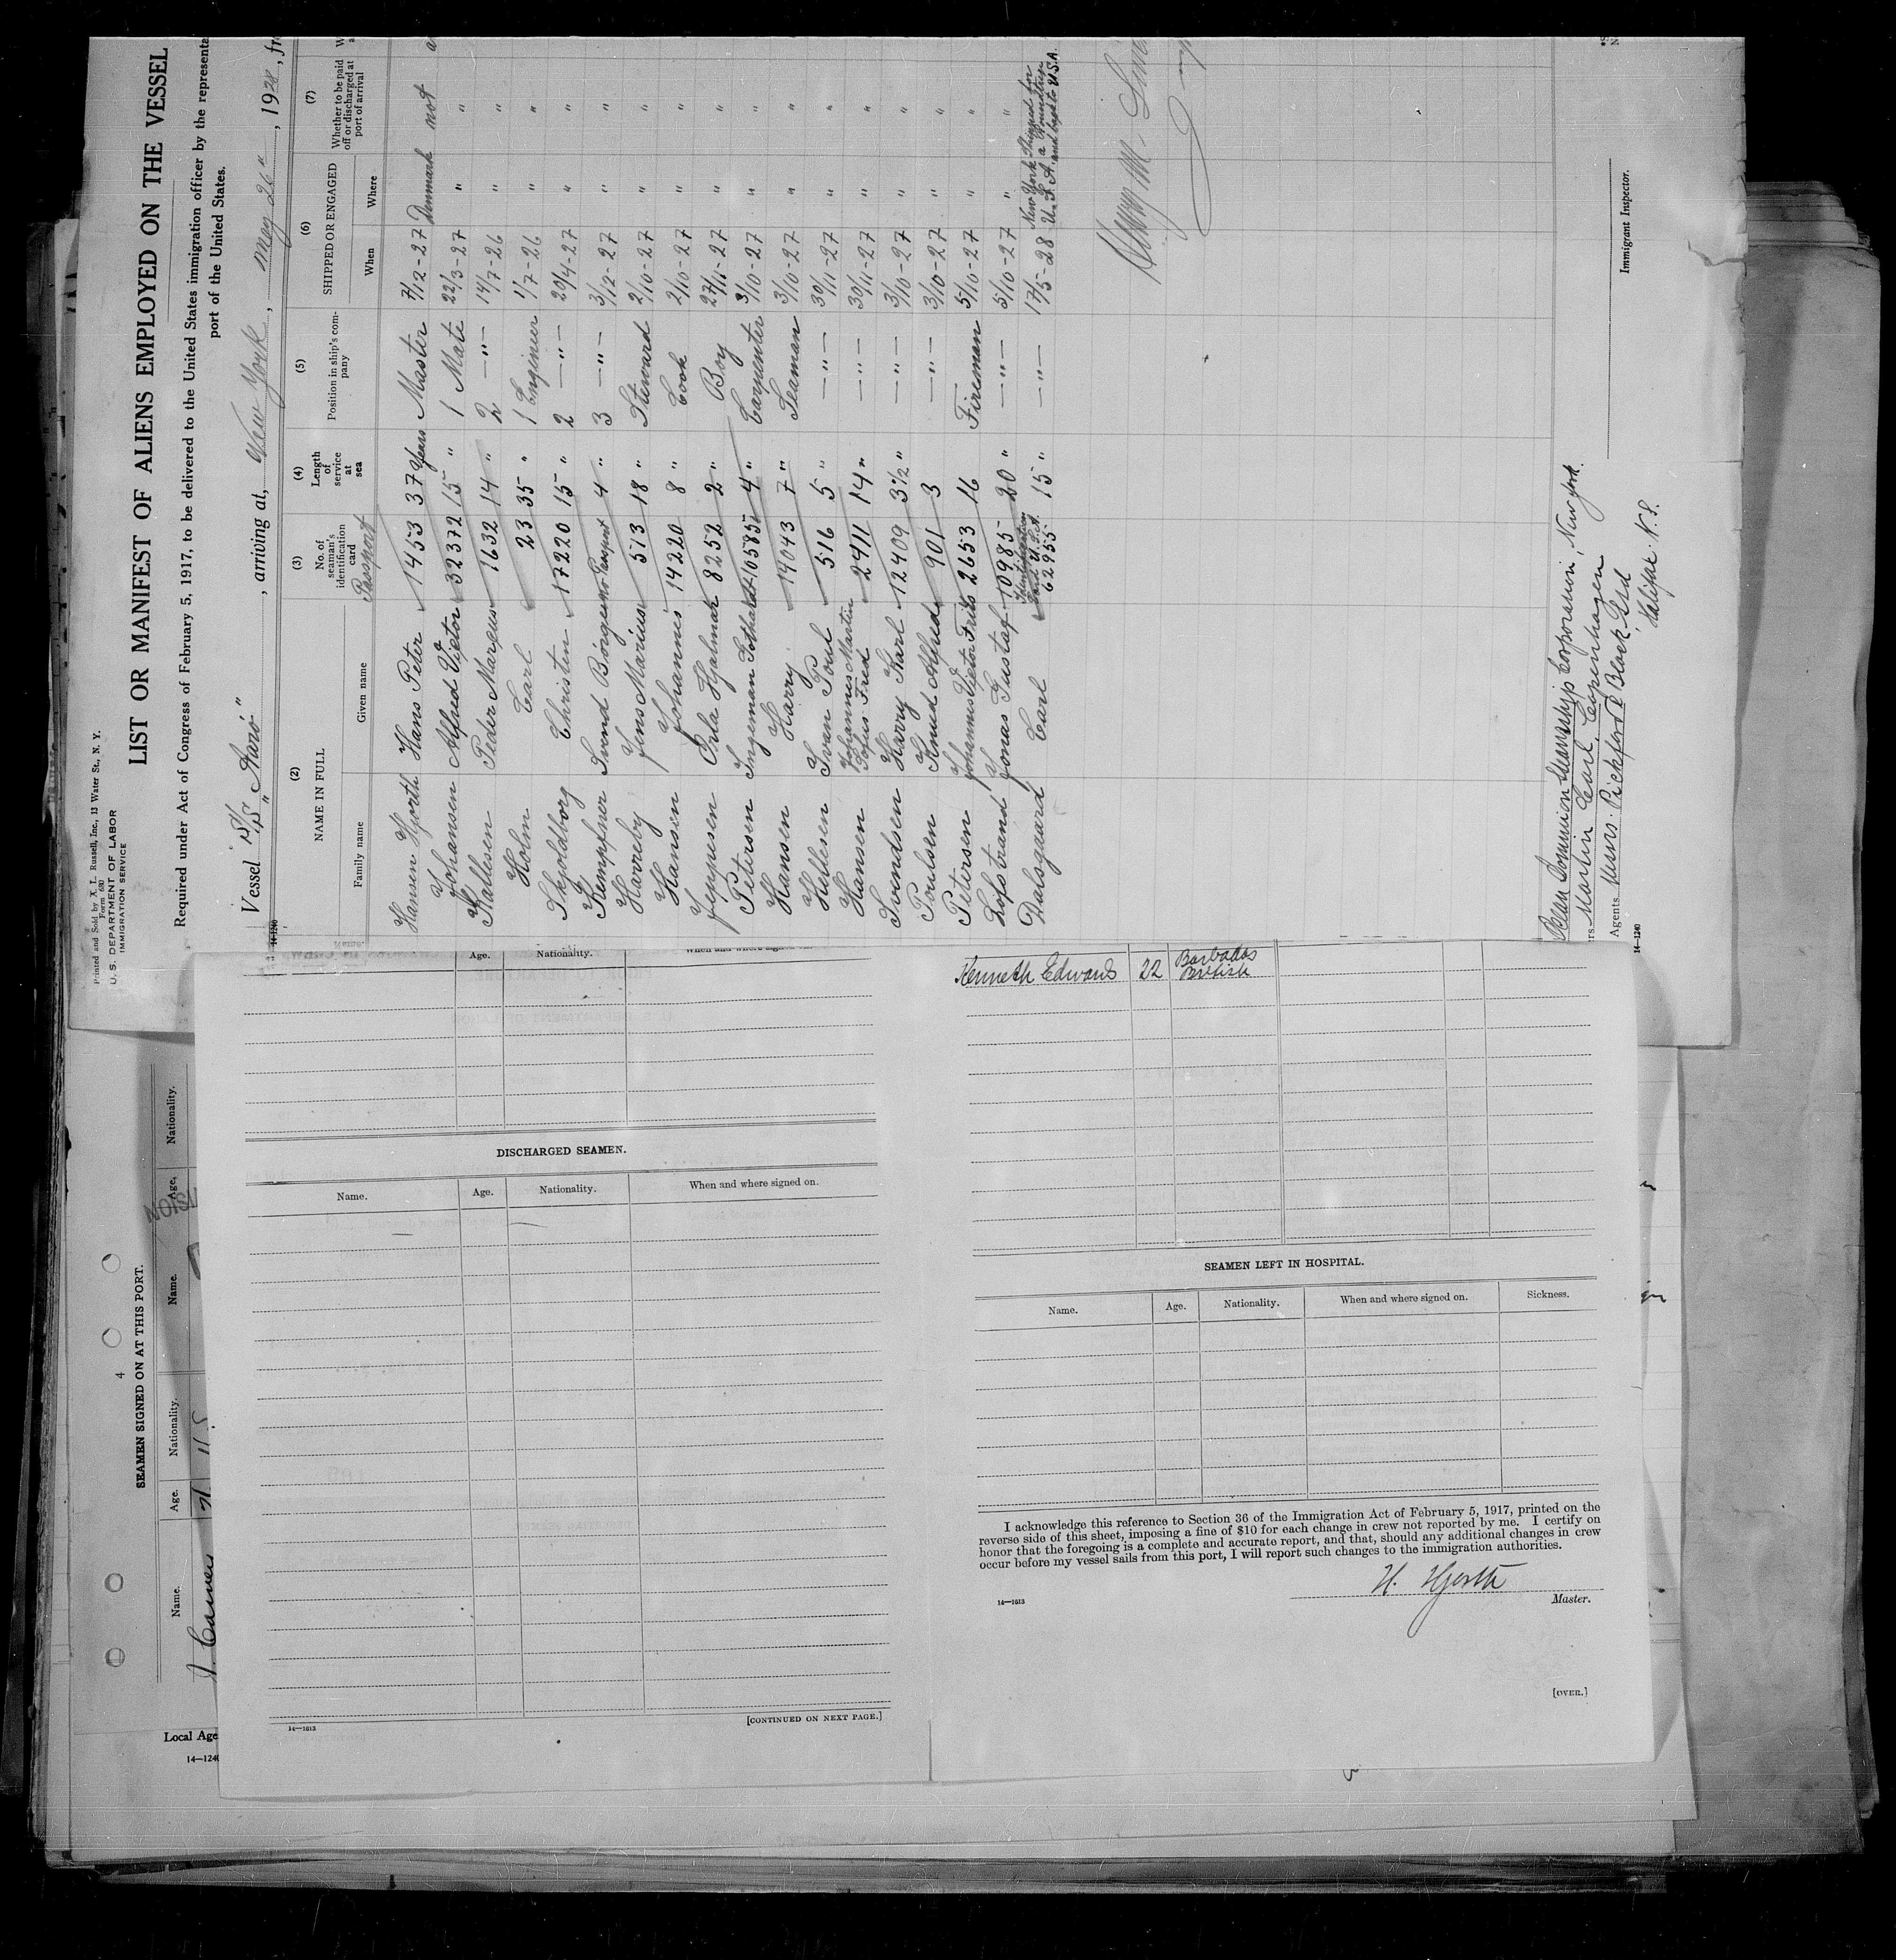 Printed and Sold by X. L. Russell, Inc., 13 Water St., N. Y.
Form 680
U. S. DEPARTMENT OF LABOR
IMMIGRATION SERVICE
LIST OR MANIFEST OF ALIENS EMPLOYED ON THE VESSEL
Required under Act of Congress of February 5, 1917, to be delivered to the United States immigration officer by the representa
port of the United States.
Vessel S/S "Aarö", arriving at, New York, May 26", 1928, fr
14-1240
(2) (3) (4) (5) (6) (7)
NAME IN FULL
Family name Given name
No. of seaman's identification card
Passport
Length of service at sea
Position in ship's company
SHIPPED OR ENGAGED
When Where
Whether to be paid off or discharged at port of arrival
Hansen Hjorth Hans Peter 1453 37 Years Master 7/12-27 Denmark not
Johansen Alfred Victor 32372 15 " 1 Mate 22/3-27 " "
Kallesen Peder Marqus 1632 14 " 2 —"— 14/7-26 " "
Holm Carl 23 35 " 1 Enginer 1/7-26 " "
Skjoldborg Christen 17220 15 " 2 —"— 20/4-27 " "
Kempfner Svend Börge no Passport 4 " 3 —"— 3/12-27 " "
Harreby Jens Marius 513 18 " Steward 2/10-27 " "
Hansen Johannes 14220 8 " Cook 2/10-27 " "
Jeppesen Orla Hjalmar 8252 2 " Boy 27/11-27 " "
Petersen Ingeman Gothardt 10585 4 " Carpenter 3/10-27 " "
Hansen Harry 14043 7 " Seaman 3/10-27 " "
Hellesen Ivan Poul 516 5 " —"— 30/11-27 " "
Hansen Johannes Martin Sofus Fred 2411 14 " —"— 30/11-27 " "
Svendsen Harry Karl 12409 3½ " —"— 3/10-27 " "
Poulsen Knud Alfred 901 3 —"— 3/10-27 " "
Petersen Johannes Victor Frits 2653 16 Fireman 5/10-27
Lofstrand Jonas Gustaf 10985 20 " —"— 5/10-27 " "
Dalsgaard Carl Identification Card U.S.A. 62955 15 " —"— 17/5-28 New York U.S.A. Shipped for a Roundtrip and back to U.S.A.
Ocean Dominion Steamship Corporation, New York.
rs Martin Carl, Copenhagen
Agents Messrs. Pickford & Black Ltd
Halifax. N.S.
14-1240
Immigrant Inspector.
4
SEAMEN SIGNED ON AT THIS PORT.
Name. Age. Nationality. Name. Age, Nationality.
Local Age
14—1240
Age. Nationality.
DISCHARGED SEAMEN.
Name. Age. Nationality. When and where signed on.
14—1613
[CONTINUED ON NEXT PAGE.]
Kenneth Edwards 22 Barbados
British
SEAMEN LEFT IN HOSPITAL.
Name. Age. Nationality. When and where signed on. Sickness.
I acknowledge this reference to Section 36 of the Immigration Act of February 5, 1917, printed on the
reverse side of this sheet, imposing a fine of $10 for each change in crew not reported by me. I certify on
honor that the foregoing is a complete and accurate report, and that, should any additional changes in crew
occur before my vessel sails from this port, I will report such changes to the immigration authorities.
H. Hjorth
Master.
14—1613
[OVER.]